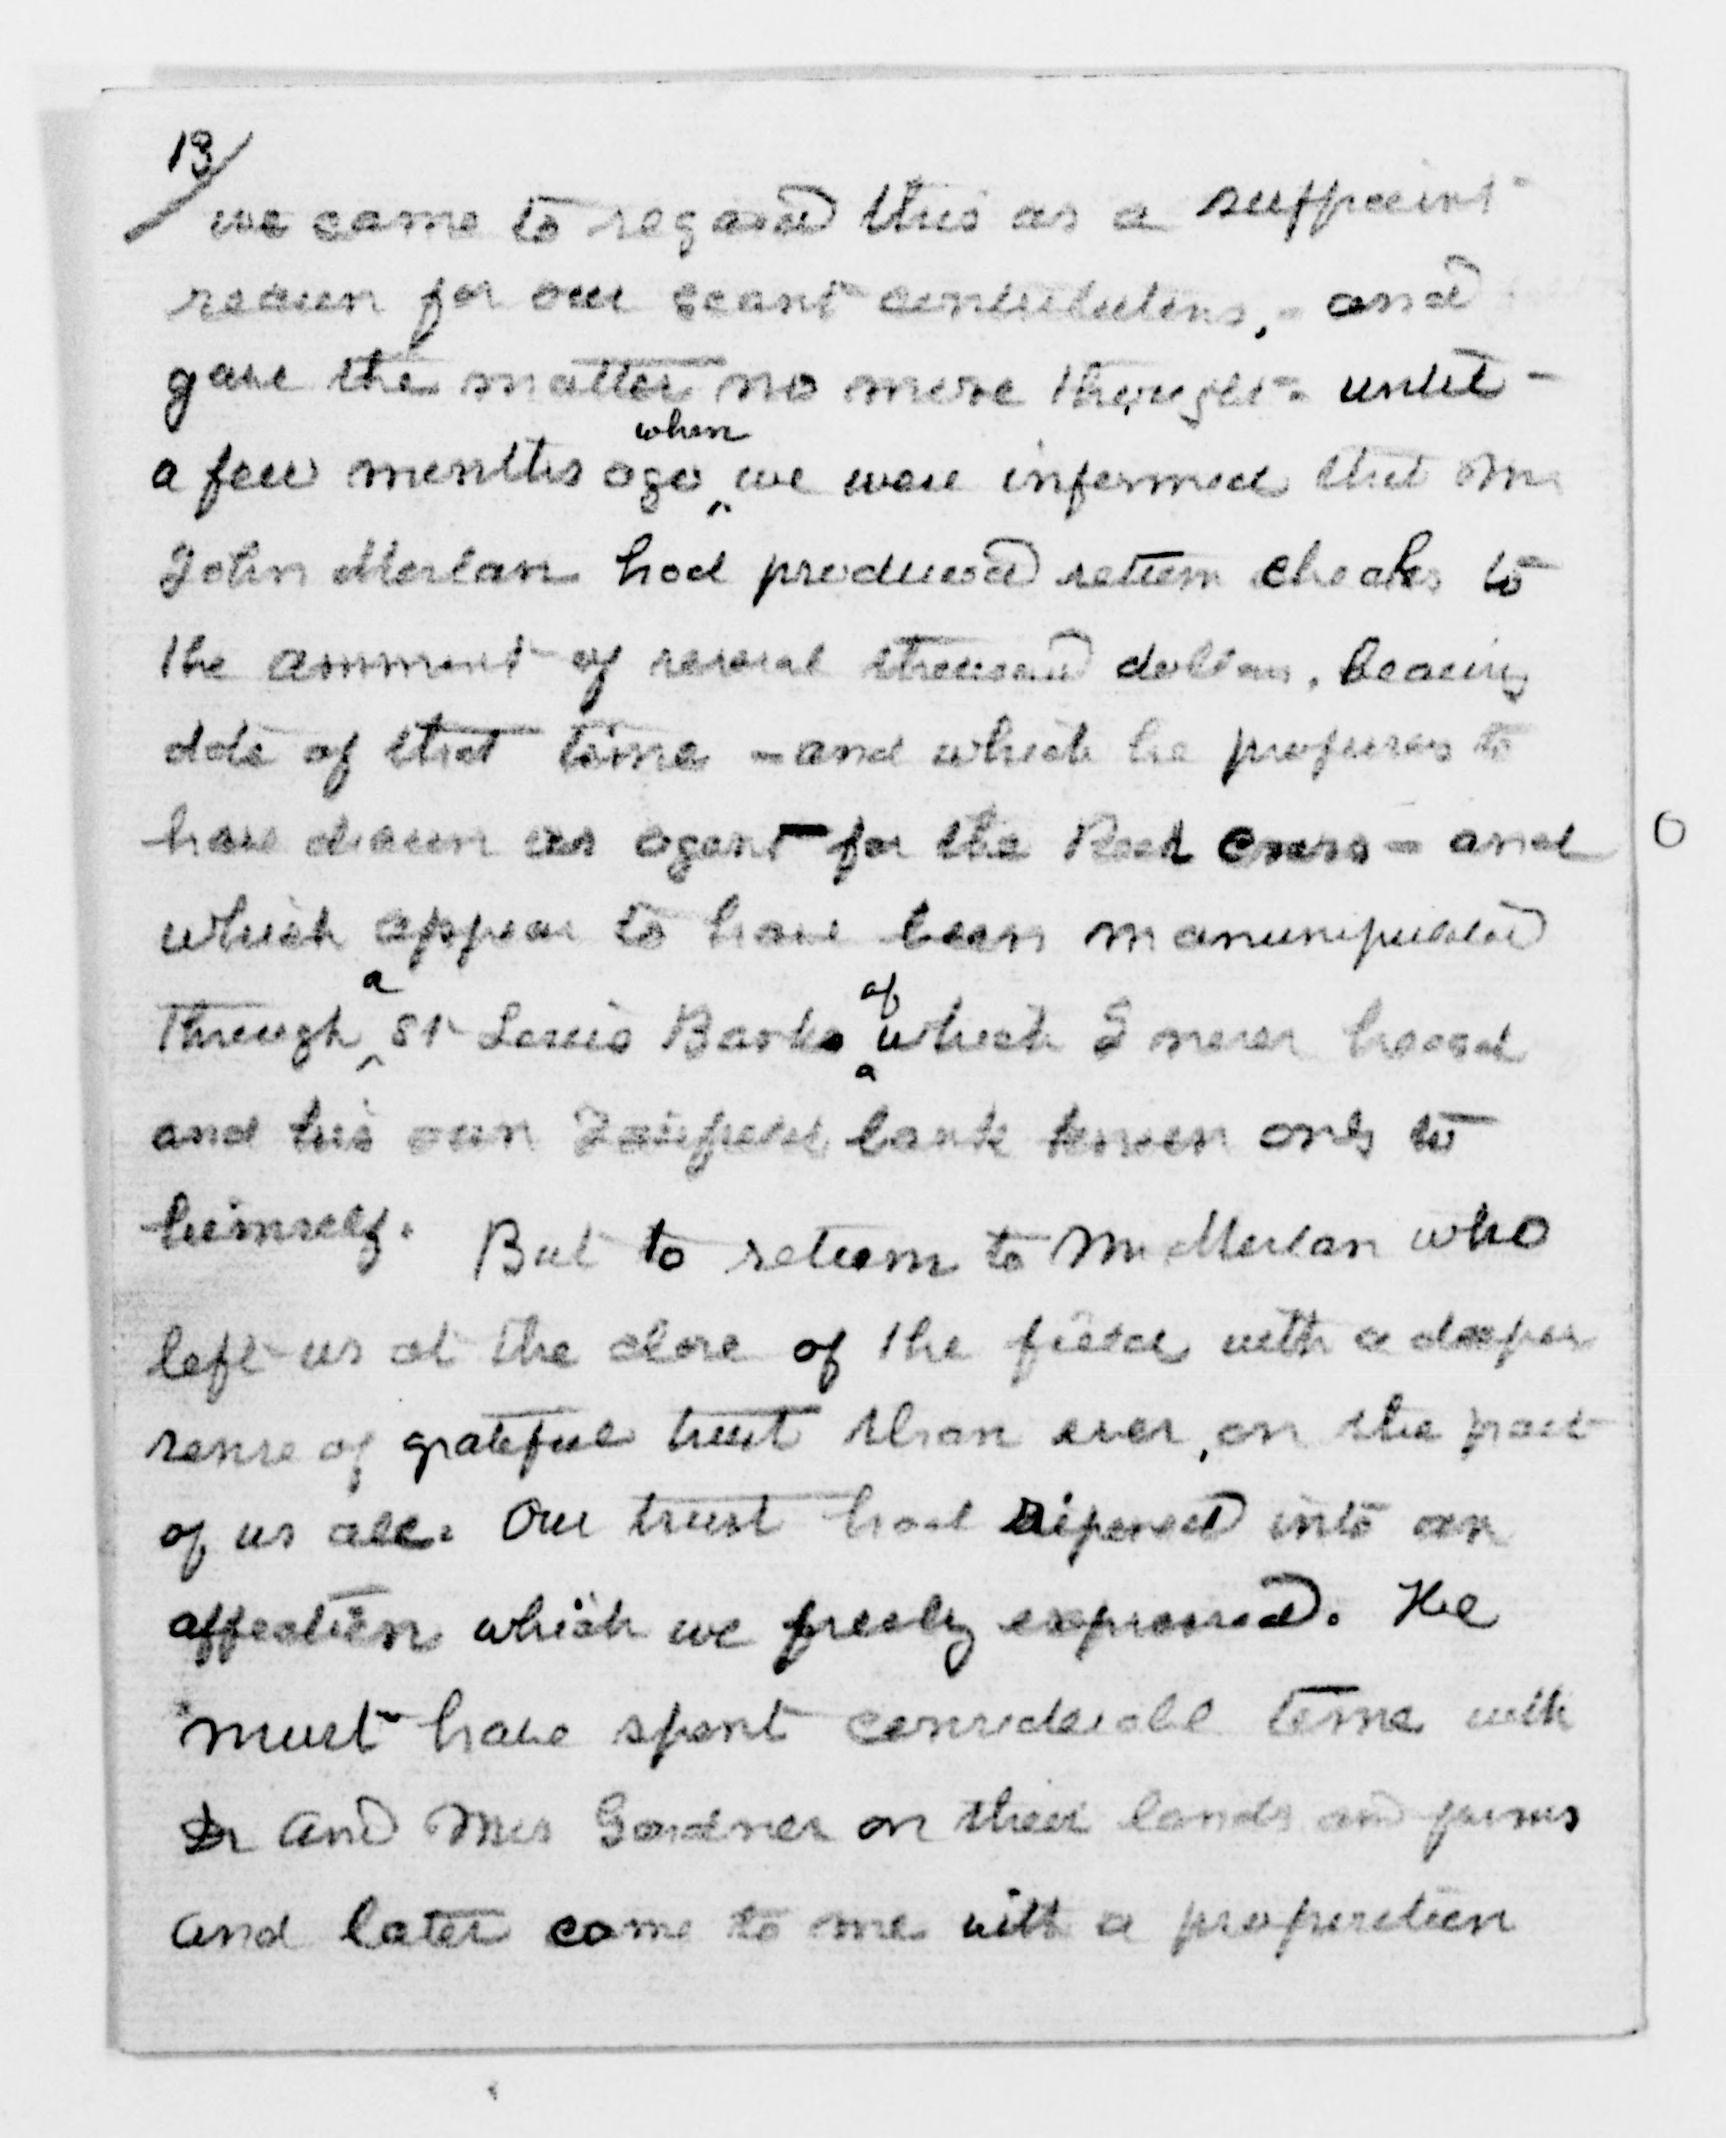 13/
we came to regard this as a sufficient
reason for our scant contributions, - and
gave the matter no more thought - until -
when
a few months ago, we were informed that Mr
John Morlan had produced return checks to
the ammount of several thousand dollars, bearing
date of that time - and which he professes to
have drawn as agent - for the Red Cross - and
which appear to have been manunipulated
a of
through St Louis Banks which I never heard
and his own Fairfield bank known only to
himself. But to return to Mr Morlan who
left us at the close of the field with a deeper
sense of grateful trust than ever, on the part
of us all. Our trust had ripened into an
affection which we freely expressed. He
must have spent considerable time with
Dr and Mrs Gardner on their lands and farms
and later came to me with a proposition